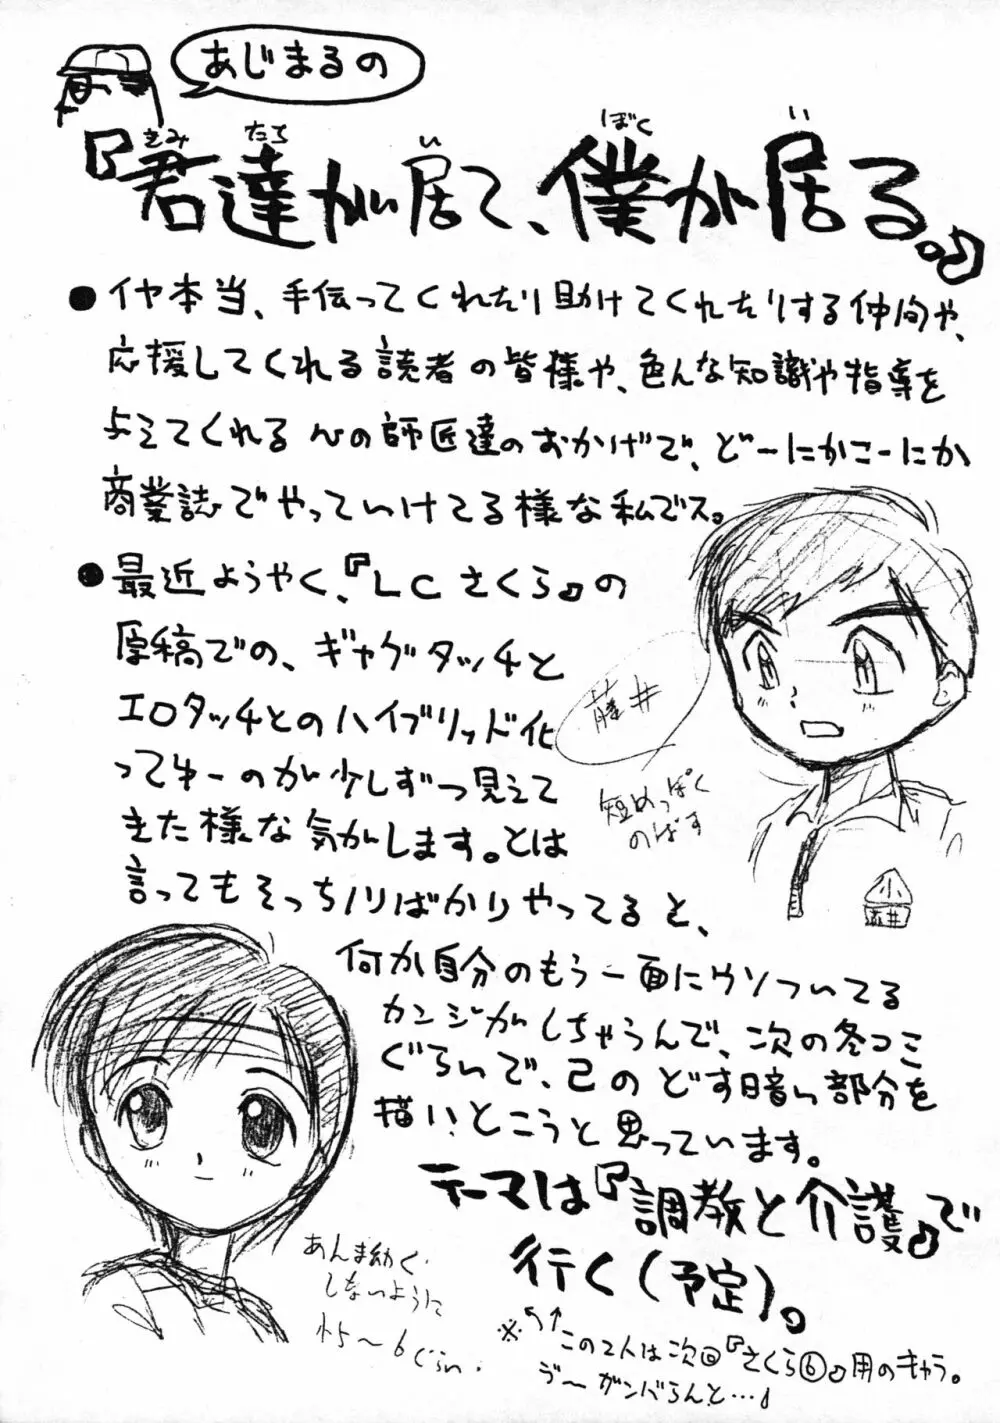 あじまるの
『君達が居て、僕が居る。』
きみ たち い ぼく い
●イヤ本当、手伝ってくれたり助けてくれたりする仲間や、
応援してくれる読者の皆様や、色んな知識や指導を
与えてくれる心の師匠達のおかげで、どーにかこーにか
商業誌でやっていけてる様な私でス。
●最近ようやく、『LCさくら』の
原稿での、ギャグタッチと
エロタッチとのハイブリッド化
ってゆーのが少しずつ見えて
きた様な気がします。とは
言ってもそっちノリばかりやってると、
何か自分のもう一面にウソついてる
カンジがしちゃうんで、次の冬コミ
ぐらいで、己のどす暗い部分を
描いとこうと思っています。
テーマは『調教と介護』で
行く(予定)。
※この2人は次回『さくら⑥』用のキャラ。
う〜ガンバらんと…♪
藤井
短めっぽく
のばす
小
あんま幼く
しないように
5〜6ぐらい.